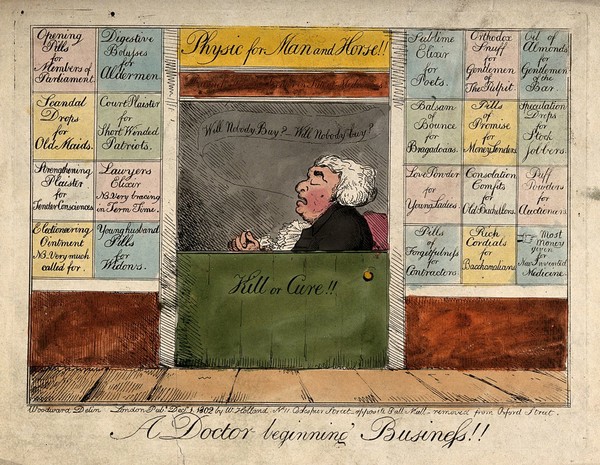 Physic for Man and Horse!!
Opening
Pills
for
Members of
Parliament.
Digestive
Bolusses
for
Aldermen.
Scandal
Drops
for
Old Maids.
Court Plaister
for
Short Winded
Patriots.
Strengthening
Plaister
for
Tender Consciences
Lawyers
Elixir
NB. Very bracing
in Term Time.
Elactioneering
Ointment
NB. Very much
called for.
Young husband
Pills
for
Widows.
Will Nobody Buy? Will Nobody buy?
Kill or Cure!!
Sublime
Elixir
for
Poets.
Orthodox
Snuff
for
Gentlemen
of
The Pulpit
Oil of
Almonds
for
Gentlemen
of the
Bar.
Balsam
of
Bounce
for
Bragadoans.
Pills
of
Promise
for
Money Lenders
Speculation
Drops
for
Stock
Jobbers.
Love Powder
for
Young Ladies.
Consolation
Comfits
for
Old Batchellors.
Puff
Powders
for
Auctioneers
Pills
of
Forgetfulness
for
Contractors.
Rich
Cordials
for
Bacchanalians
Most
money
given
for
New Invented
Medicine
Woodward Delin London Pub. Decr 1 1802 by W. Holland No 11 Cockspur Street opposite Pall Mall removed from Oxford Street.
A Doctor beginning Business!!